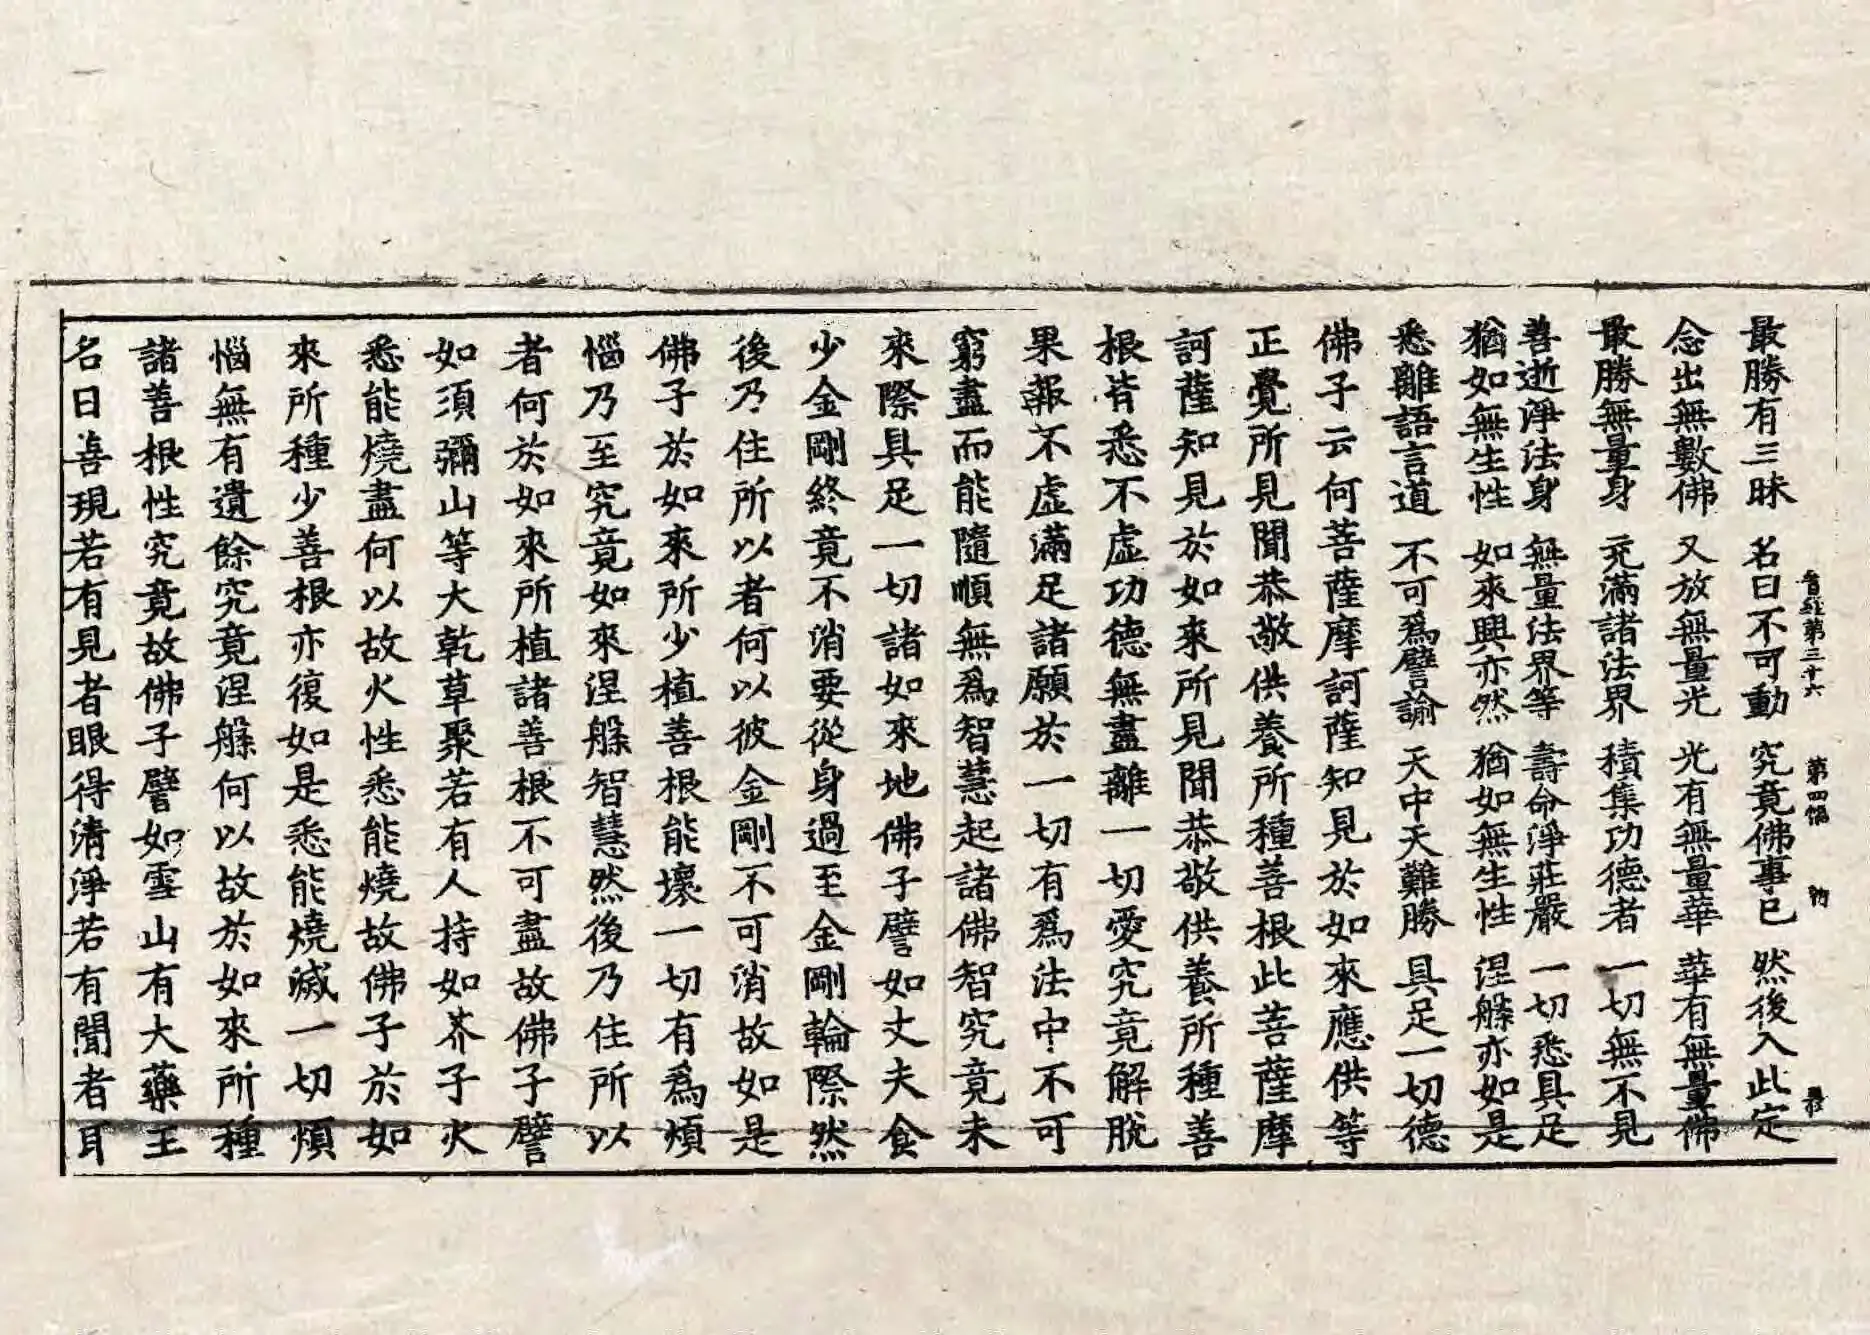 晉經第三十六 第四幅
最勝有三昧 名曰不可動 究竟佛事已 然後入此定
念出無數佛 又放無量光 光有無量華 華有無量佛
最勝無量身 充滿諸法界 積集功德者 一切無不見
善逝淨法身 無量法界等 壽命淨莊嚴 一切悉具足
猶如無生性 如來興亦然 猶如無生性 涅槃亦如是
悉離語言道 不可爲譬諭 天中天難勝 具足一切德
佛子云何菩薩摩訶薩知見於如來應供等
正覺所見聞恭敬供養所種善根此菩薩摩
訶薩知見於如來所見聞恭敬供養所種善
根皆悉不虛功德無盡離一切愛究竟解脫
果報不虛滿足諸願於一切有爲法中不可
窮盡而能隨順無爲智慧起諸佛智究竟未
來際具足一切諸如來地佛子譬如丈夫食
少金剛終竟不消要從身過至金剛輪際然
後乃住所以者何以彼金剛不可消故如是
佛子於如來所少植善根能壞一切有爲煩
惱乃至究竟如來涅槃智慧然後乃住所以
者何於如來所植諸善根不可盡故佛子譬
如須彌山等大乾草聚若有人持如芥子火
悉能燒盡何以故火性悉能燒故佛子於如
來所種少善根亦復如是悉能燒滅一切煩
惱無有遺餘究竟涅槃何以故於如來所種
諸善根性究竟故佛子譬如雪山有大藥王
名曰善現若有見者眼得清淨若有聞者耳